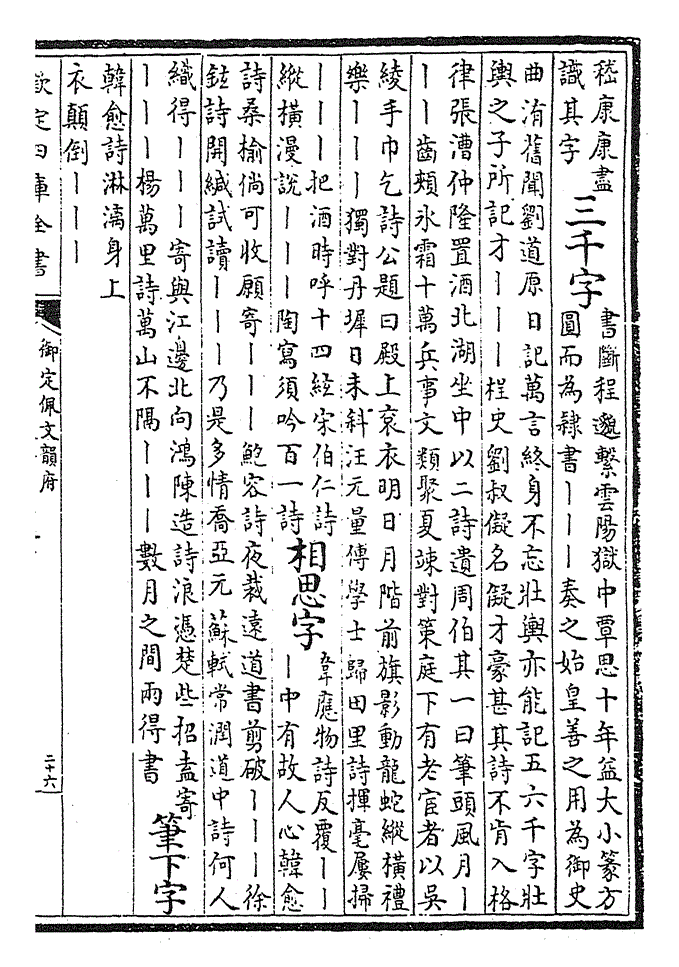 嵇康康盡
識其字
三千字
書斷程邈繫雲陽獄中覃思十年益大小篆方
圓而為隸書丨丨丨奏之始皇善之用為御史
曲洧舊聞劉道原日記萬言終身不忘壯輿亦能記五六千字壯
輿之子所記才丨丨丨桯史劉叔儗名儗才豪甚其詩不肯入格
律張漕仲隆置酒北湖坐中以二詩遺周伯其一曰筆頭風月丨
丨丨齒頰氷霜十萬兵事文類聚夏竦對策庭下有老宦者以吳
綾手巾乞詩公題曰殿上衮衣明日月階前旗影動龍蛇縱橫禮
樂丨丨丨獨對丹墀日未斜汪元量傅學士歸田里詩揮毫屢掃
丨丨丨把酒時呼十四絃宋伯仁詩
縱橫漫說丨丨丨陶寫須吟百一詩
相思字
韋應物詩反覆丨丨
丨中有故人心韓愈
詩桑榆倘可收願寄丨丨丨鮑容詩夜裁遠道書剪破丨丨丨徐
鉉詩開緘試讀丨丨丨乃是多情喬亞元蘇軾常潤道中詩何人
織得丨丨丨寄與江邊北向鴻陳造詩浪憑楚些招寄
丨丨丨楊萬里詩萬山不隔丨丨丨數月之間兩得書
筆下字
韓愈詩淋漓身上
衣顛倒丨丨丨
欽定四庫全書
御定佩文韻府
二十六